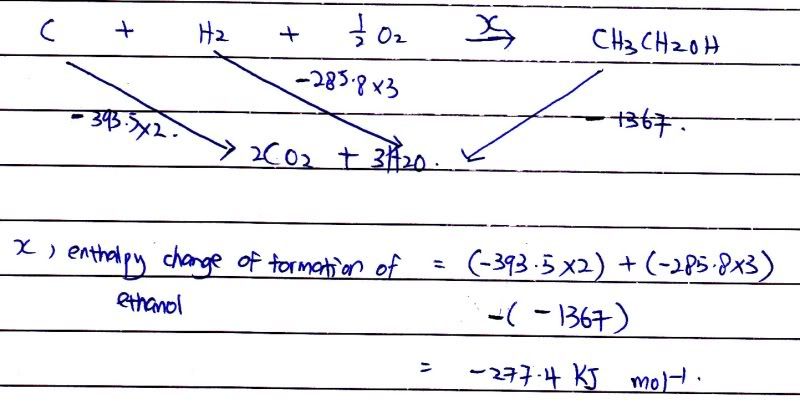 C + H2 + 1/2 O2 x → CH3CH2OH
-285.8×3
-393.5×2.
-1367.
2CO2 + 3H2O.
x, enthalpy change of formation of = (-393.5×2) + (-285.8×3)
ethanol -(-1367)
= -277.4 KJ mol-1.